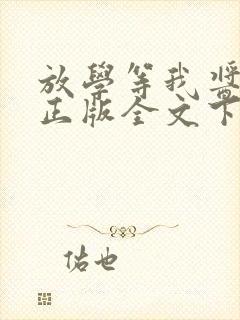 放學等我醬
正版全文下
佑也